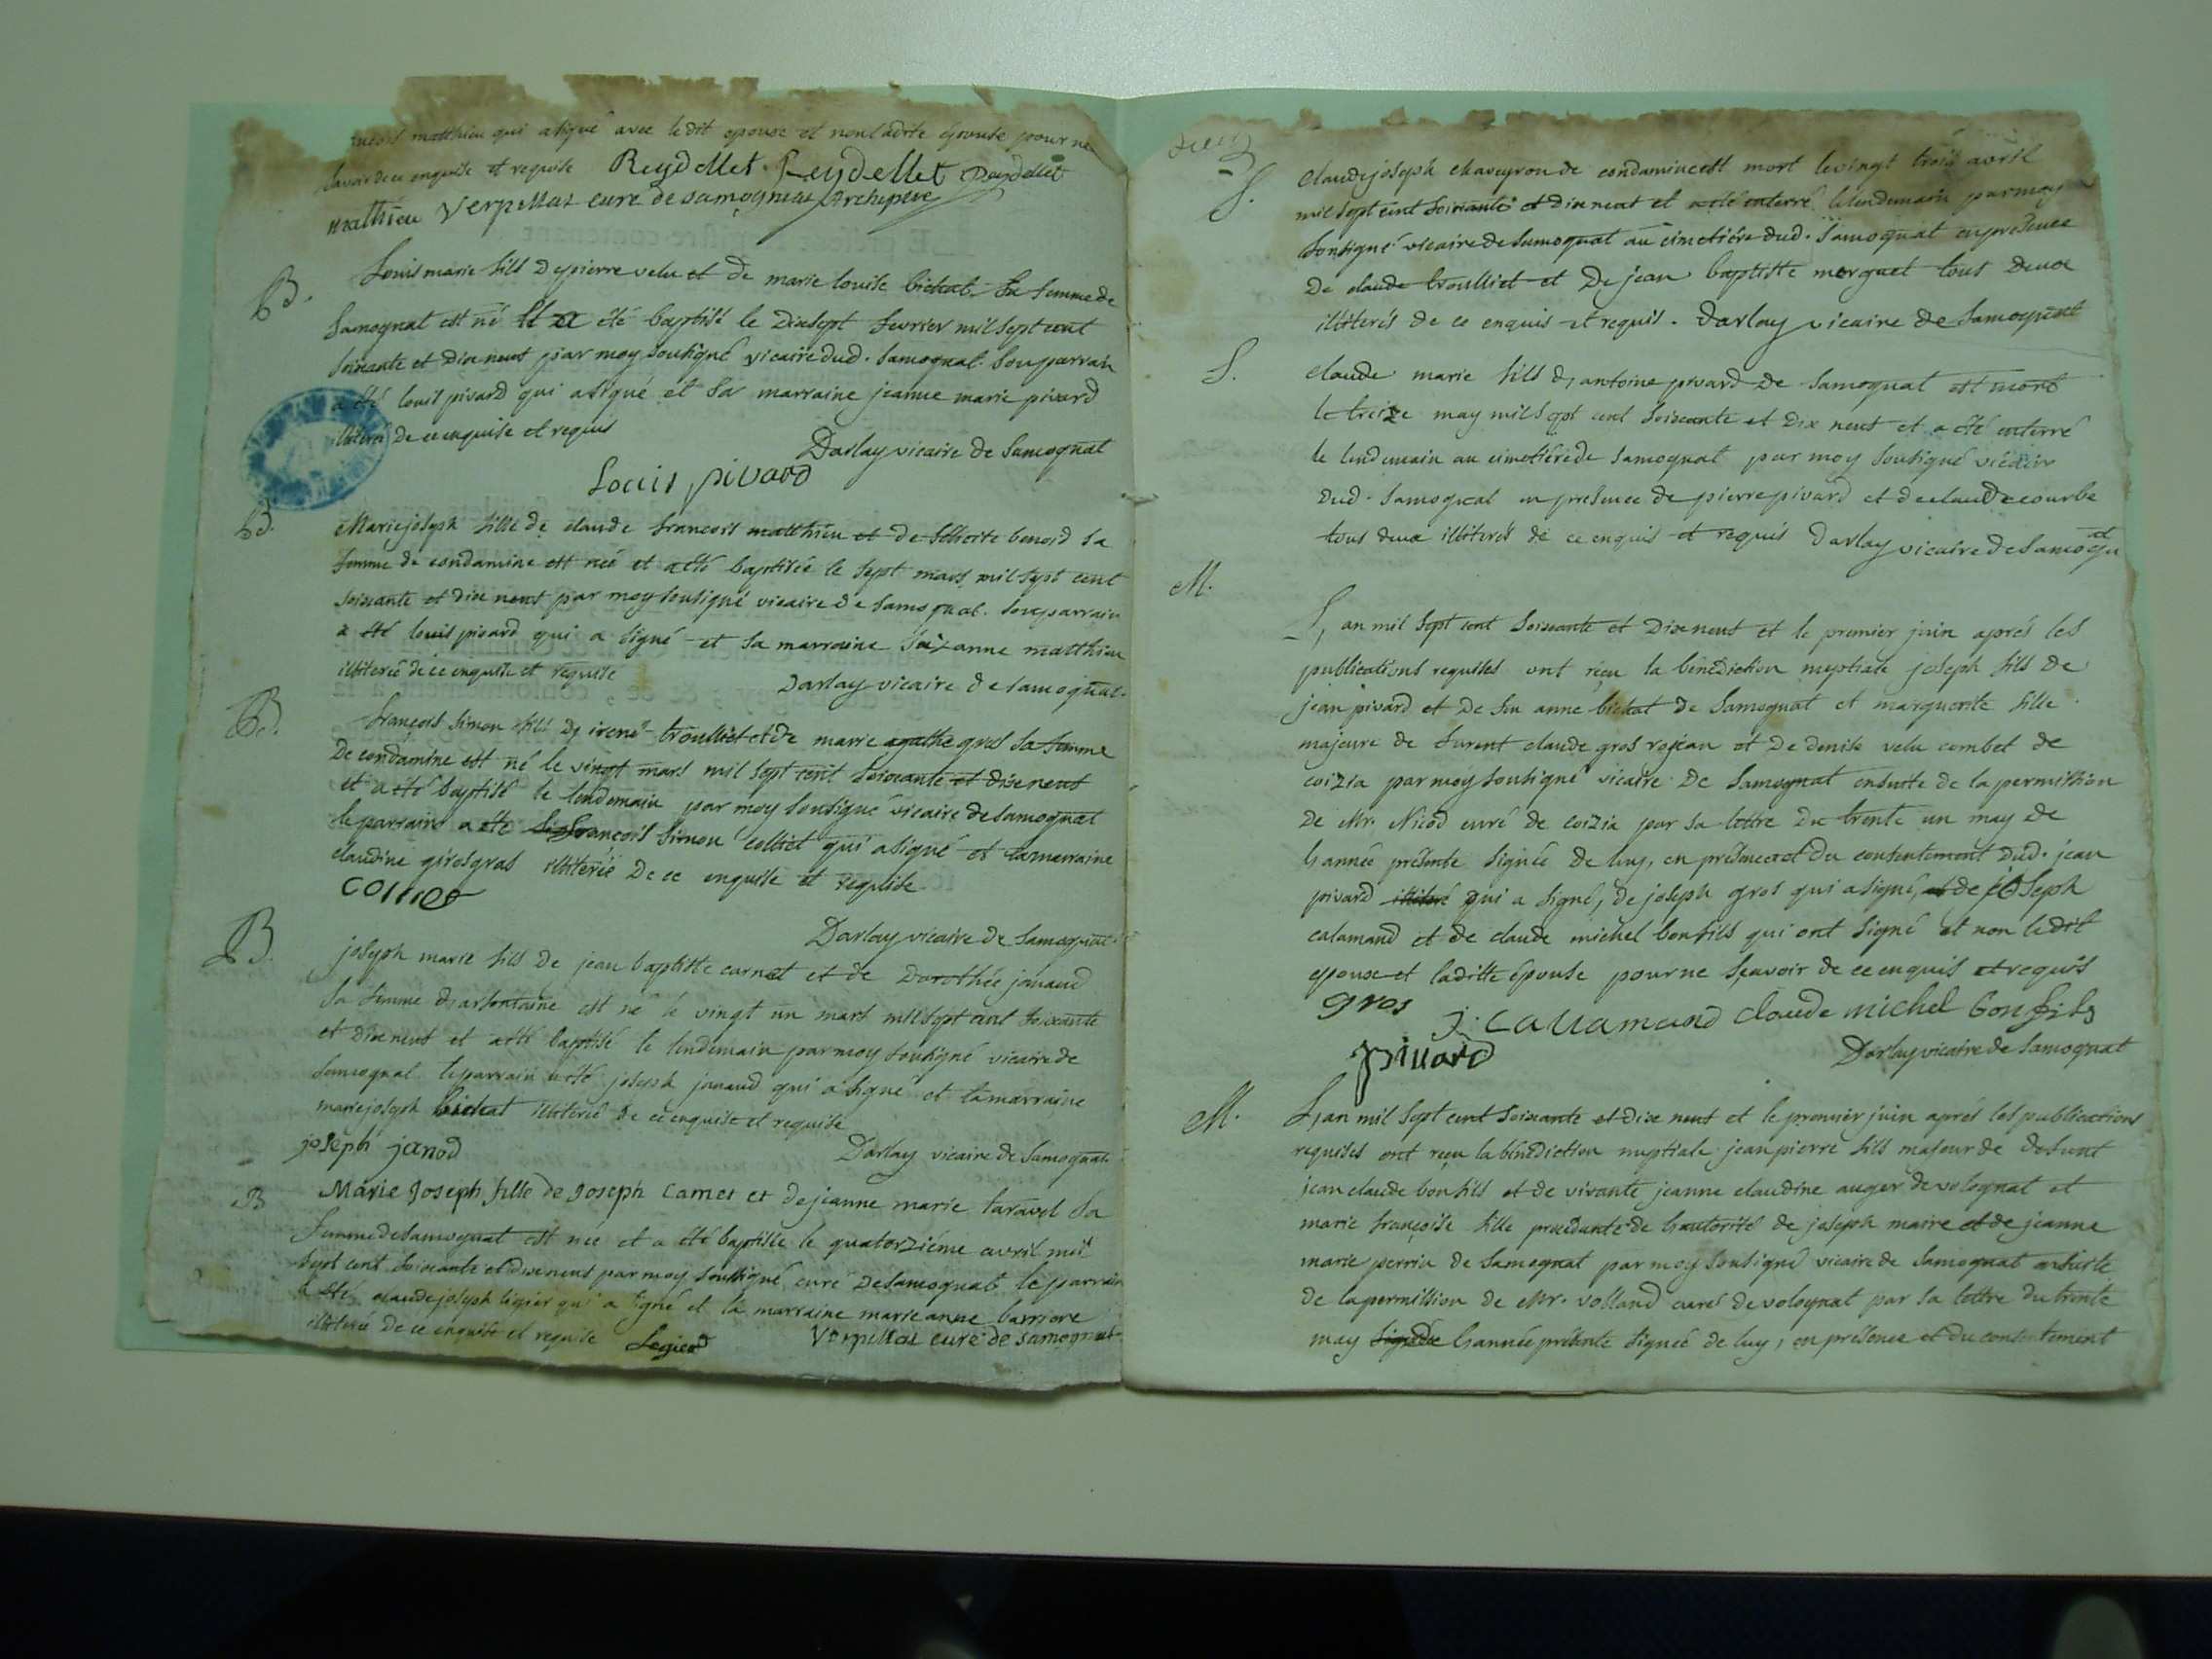 matthieu qui a signé avec ledit epoux et non ladite épouse pour ne
scavoir de ce enquise et requise Reydellet Reydellet Reydellet
mathieu Verpillat curé de samognat Archiprêtre
B.
Louis marie fils de pierre velu et de marie louise bichat sa femme de
Samognat est né et a été baptisé le dixsept fevrier mil sept cent
soixante et dix neuf par moy soussigné vicaire dud. Samognat. Son parrain
a été louis pivard qui a signé et sa marraine jeanne marie pivard
illiterée de ce enquise et requis
Darlay vicaire de Samognat
Louis pivard
B.
Marie joseph fille de claude francois matthieu et de benoid sa
femme de condamine est née et a été baptisée le sept mars mil sept cent
soixante et dix neuf par moy soussigné vicaire de Samognat. Son parrain
a été louis pivard qui a signé et sa marraine Suzanne matthieu
illiterée de ce enquise et requise
Darlay vicaire de Samognat.
B.
françois simon fils d, irené trouilliet et de marie agathe gros sa femme
De condamine est né le vingt mars mil sept cent soixante et dixe neuf
et a été baptisé le lendemain par moy soussigné vicaire de samognat
le parrain a été françois simon colliet qui a signé et la marraine
claudine girosgras illiterée De ce enquise et requise
Darlay vicaire de Samognat
B.
joseph marie fils de jean baptiste carnet et de Dorothée janaud
sa femme d, arfontaine est né le vingt un mars mil sept cent soixante
et dixe neuf et a été baptisé le lendemain par moy soussigné vicaire de
Samognat le parrain a été joseph janaud qui a signé et la marraine
marie joseph bichat illiterée de ce enquise et requise
joseph janod
Darlay vicaire de Samognat
B
Marie Joseph fille de Joseph Carnet et de jeanne marie taravel sa
femme de Samognat est née et a été baptisée le quatorziéme avril mil
sept cent soixante et dixe neuf par moy soussigné curé de Samognat le parrain
a été claude joseph légier qui a signé et la marraine marie anne barriore
illiterée De ce enquise et requise Legier Verpillat curé de Samognat
S.
Claude joseph chaveyron de condamine est mort le vingt trois avril
mil sept cent soixante et dixe neuf et a été enterré le lendemain par moy
soussigné vicaire de Samognat au cimetiére dud. Samognat en presence
De claude trouilliet et De jean baptiste morguet tous deux
illiterés de ce enquis et requis. Darlay vicaire de Samognat
S.
claude marie fils d, antoine pivard de Samognat est mort
le treize may mil sept cent soixante et dix neuf et a été enterré
le lendemain au cimetiére de Samognat par moy soussigné vicaire
dud. Samognat en presence de pierre pivard et de claude courbe
tous deux illiterés de ce enquis et requis Darlay vicaire de Samognat
M.
L, an mil sept cent soixante et dixe neuf et le premier juin aprés les
publications requises ont reçu la bénédiction nuptiale joseph fils de
jean pivard et de feu anne bichat de Samognat et marguerite fille
majeure de furent claude gros rojean et De denise velu combet de
coizia par moy soussigné vicaire De Samognat ensuite de la permission
De Mr. Nicod curé de coizia par sa lettre du trente un may de
l'année présente signée de luy, en présence et du consentement dud. jean
pivard illiteré qui a signé, de joseph gros qui a signé, et de joseph
calamand et de claude michel bonfils qui ont signé et non ledit
epoux et laditte épouse pour ne sçavoir de ce enquis et requis
gros J. Callamand claude michel bonfils
pivard
Darlay vicaire de Samognat
M.
L, an mil sept cent soixante et dixe neuf et le premier juin aprés les publications
requises ont reçu la bénédiction nuptiale jean pierre fils majeur de defunt
jean claude bonfils et de vivante jeanne claudine auger de volognat et
marie françoise fille procédante de l'autorité de joseph maire et de jeanne
marie perrin de Samognat par moy soussigné vicaire de Samognat ensuite
de la permission de Mr. Volland curé de volognat par sa lettre du trente
may l'année présente signée de luy, en présence et du consentement